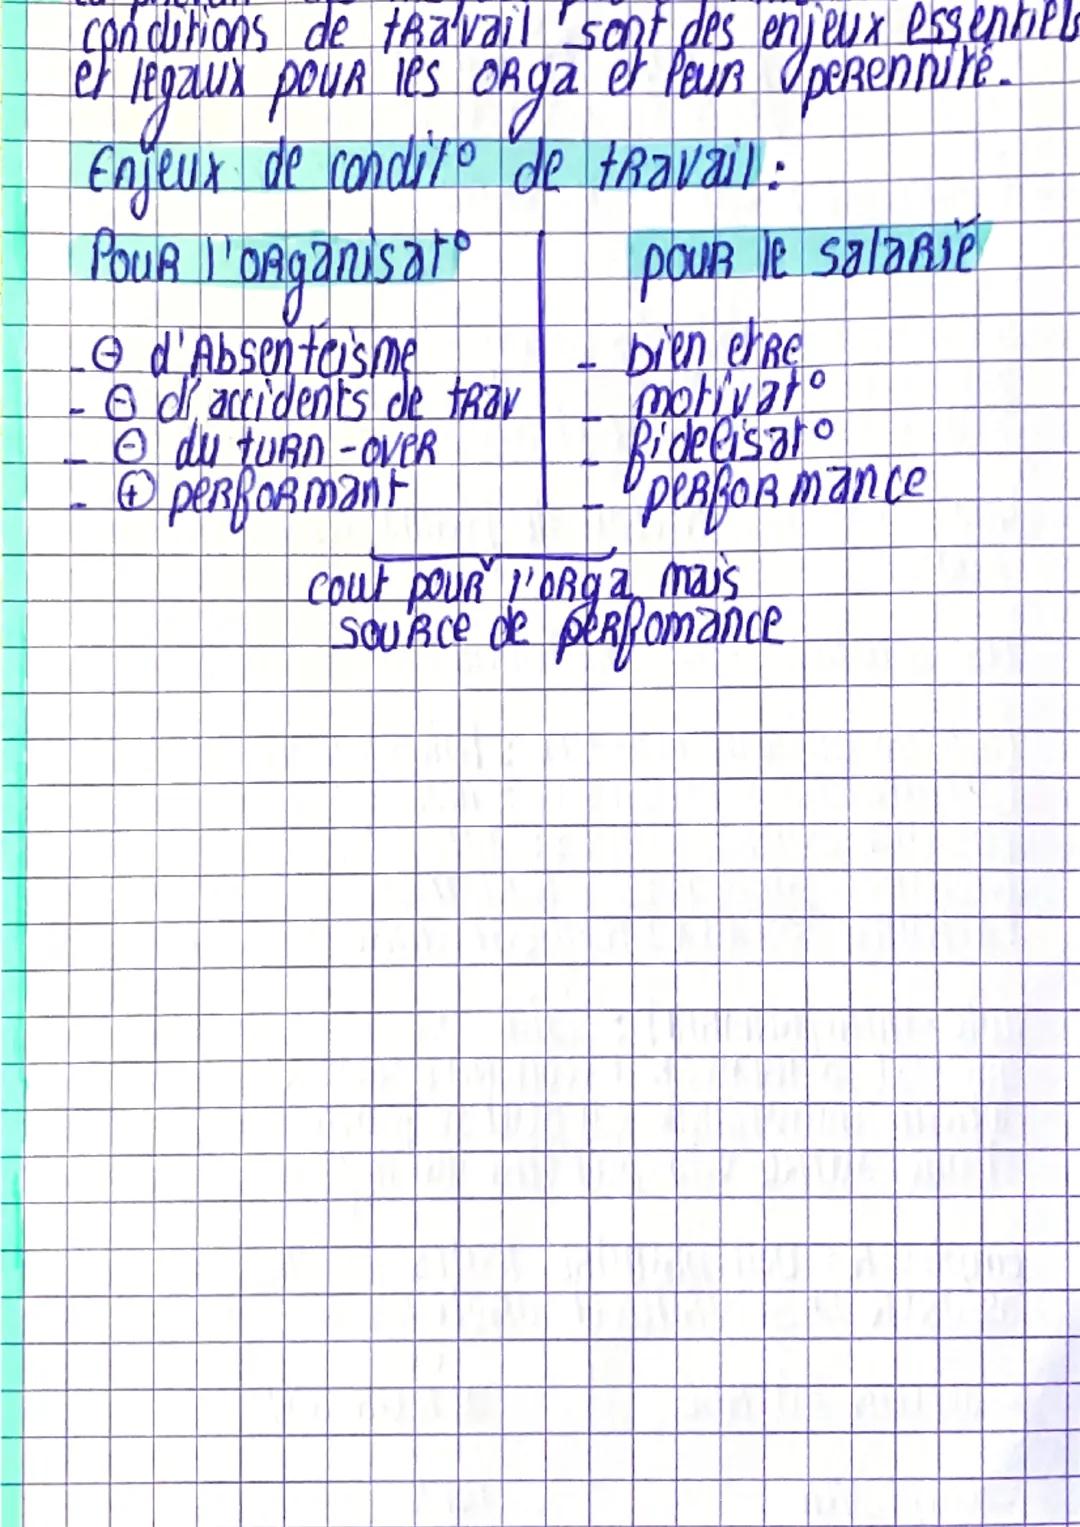 conditions de travail sont des enjeux essentiels
et légaux pour les orga et leur perennité.
Enjeux de condit° de travail :
Pour l'organisat°
pour le salarié
- ⊖ d'Absentéisme
- ⊖ d'accidents de trav
- ⊖ du turn-over
- ⊕ performant
- bien etre
- motivat°
- fidelisat°
- performance
cout pour l'orga mais
source de perfomance